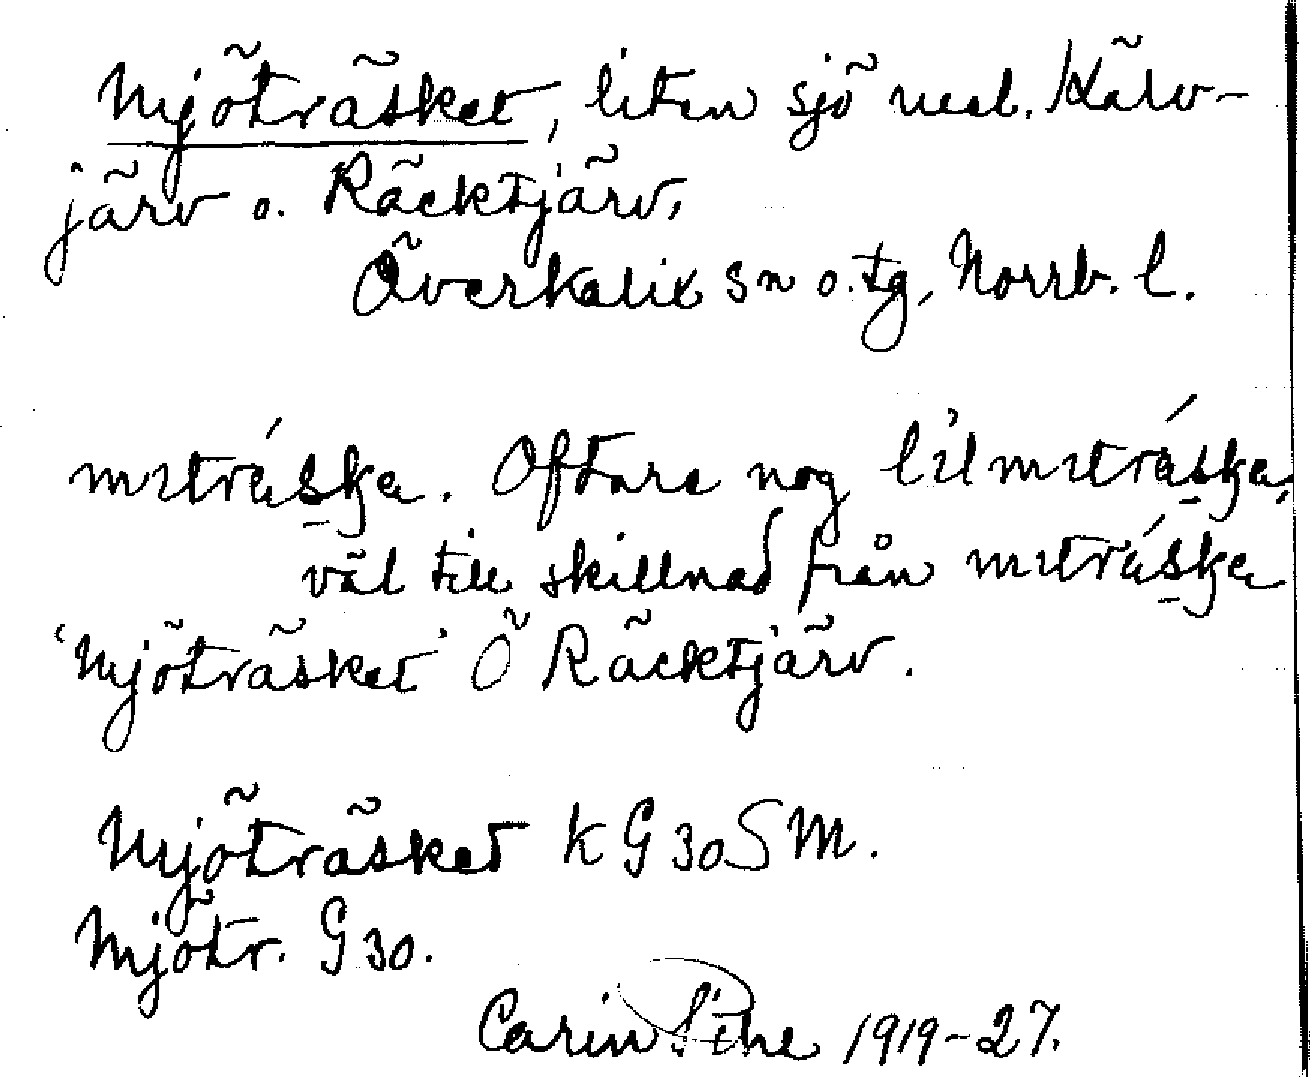 Mjöträsket, liten sjö med. Hälv-
järv o. Räcktjärv,
Överkalix sn o. tg, Norrb. l.
mıtráska. Oftare nog lılmıtráska,
väl till skillnad från mıtráska
'Mjöträsket' Ö Räcktjärv.
Mjöträsket K G 30 S M.
Mjötr. G 30.
Carin Pihl 1919-27.